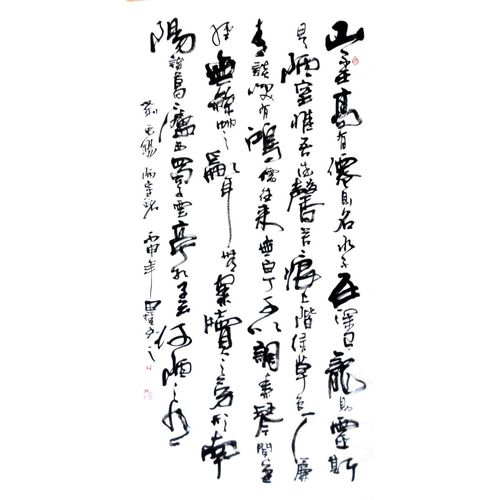 山不在高有僊則名水不在深有龍則靈斯
是陋室惟吾德馨苔痕上階綠草色入簾
青談笑有鴻儒往來無白丁可以調素琴閱金
經無絲竹之亂耳無案牘之勞形南
陽諸葛廬西蜀子雲亭孔子云何陋之有
劉禹錫陋室銘 丙申年